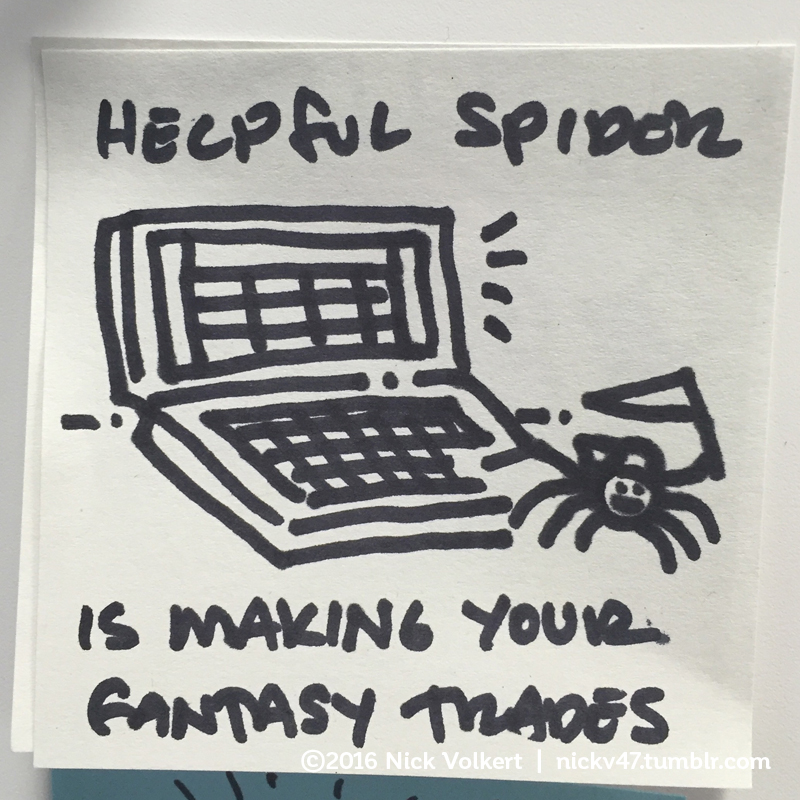 HELPFUL SPIDER
IS MAKING YOUR
FANTASY TRADES
©2016 Nick Volkert | nickv47.tumblr.com